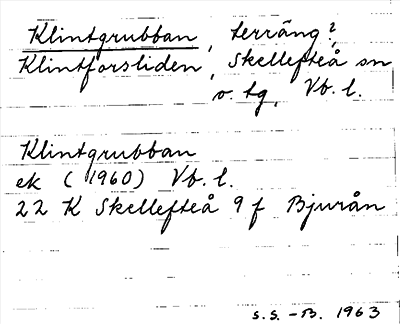 Klintgrubban, terräng?,
Klintforsliden, Skellefteå sn
o. tg, Vb. l.
Klintgrubban
ek (1960) Vb. l.
22 K Skellefteå 9 f Bjurån
S.S. - B. 1963